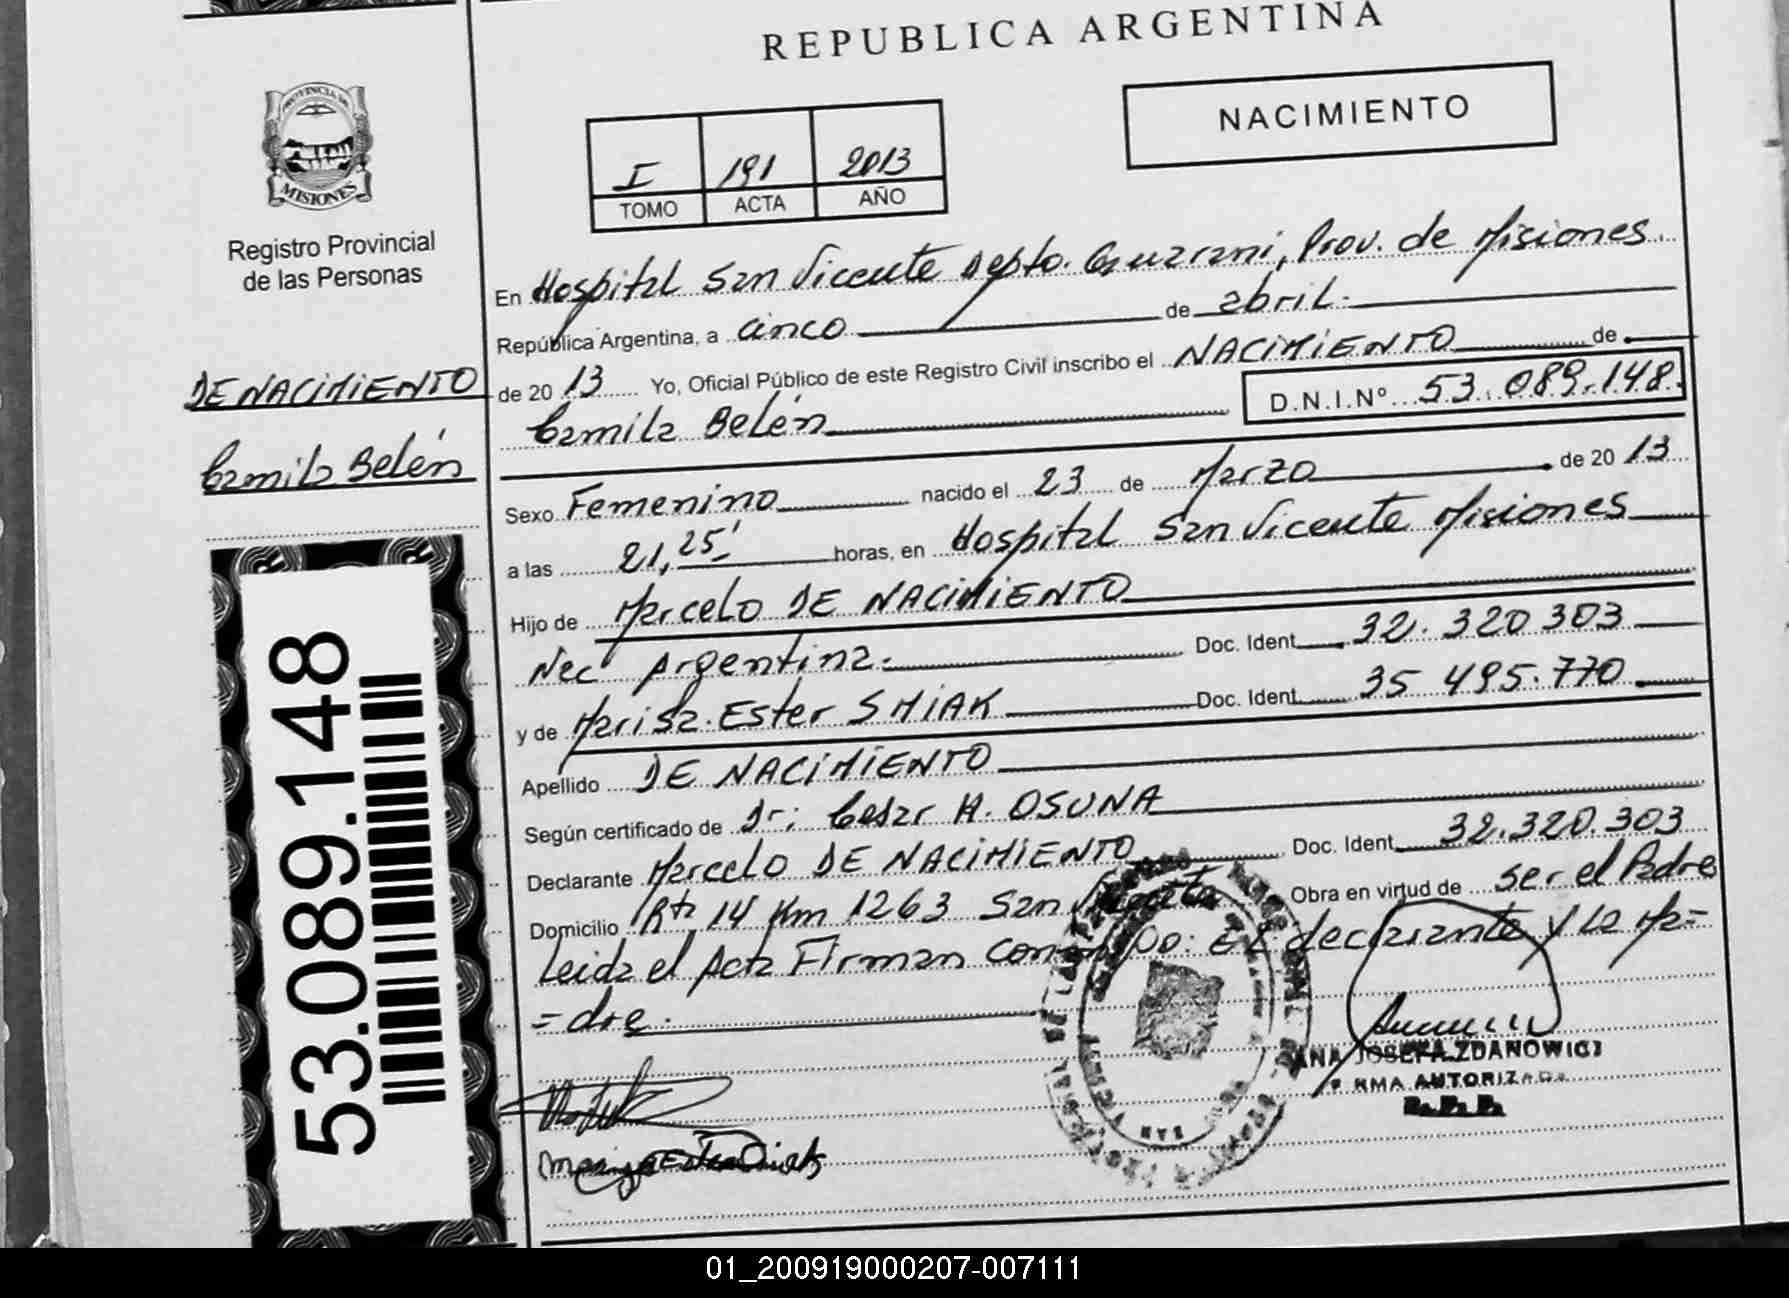 REPUBLICA ARGENTINA
NACIMIENTO
I 191 2013
TOMO ACTA AÑO
PROVINCIA DE
MISIONES
Registro Provincial
de las Personas
DE NACIMIENTO
Camila Belén
53.089.148
En Hospital San Vicente Depto. Guarani, Prov. de Misiones.
República Argentina, a cinco de abril.
de 20 13 Yo, Oficial Público de este Registro Civil inscribo el NACIMIENTO de
Camila Belén D.N.I.Nº 53.089.148.
Sexo Femenino nacido el 23 de Marzo de 20 13
a las 21,25' horas, en Hospital San Vicente Misiones
Hijo de Marcelo DE NACIMIENTO
Nac Argentina. Doc. Ident. 32.320 303
y de Marisa Ester SMIAK Doc. Ident. 35 495.770
Apellido DE NACIMIENTO
Según certificado de Dr; Cesar H. OSUNA
Declarante Marcelo DE NACIMIENTO Doc. Ident. 32.320.303
Domicilio Rta 14 Km 1263 San Vicente Obra en virtud de ser el Padre
Leida el Acta Firman conmigo: El declarante y La Ma=
=dre.
ANA JOSEFA ZDANOWICZ
FIRMA AUTORIZADA
R.P.P.
01_200919000207-007111